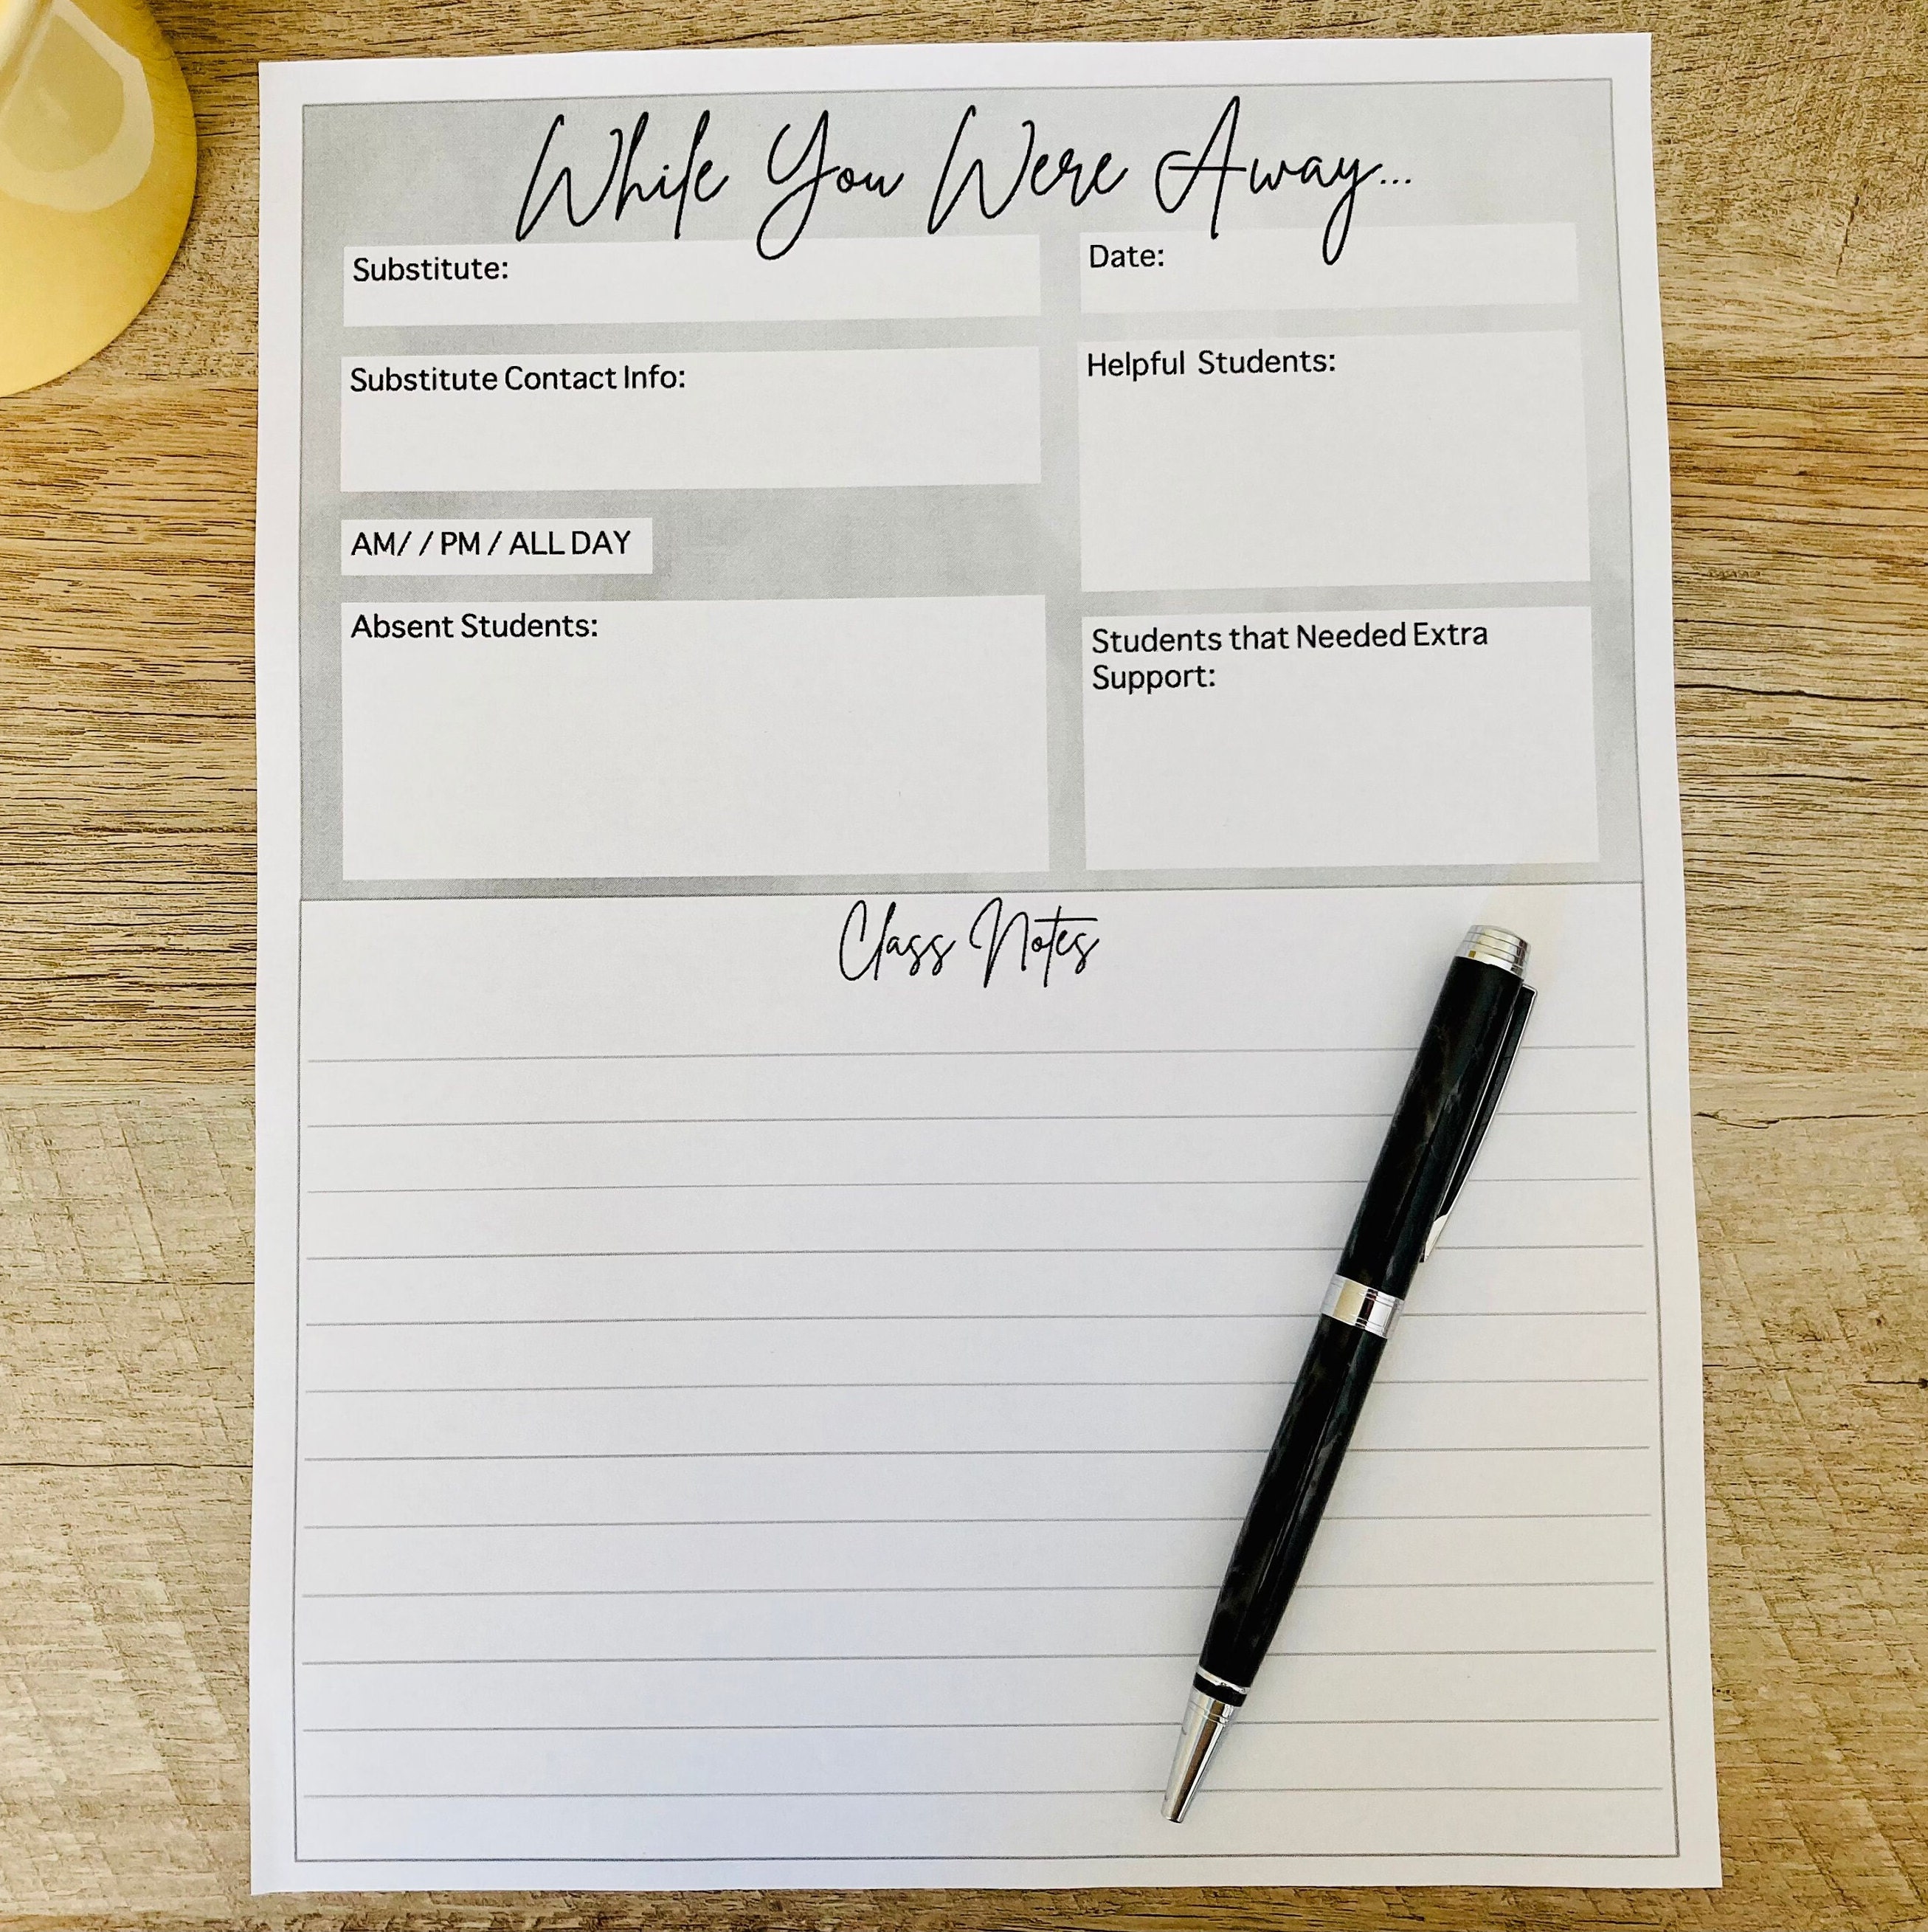 While You Were Away...
Substitute:
Date:
Substitute Contact Info:
Helpful Students:
AM/ / PM / ALL DAY
Absent Students:
Students that Needed Extra
Support:
Class Notes